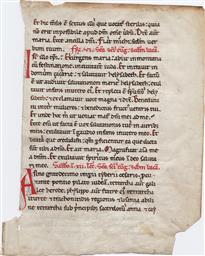 Et hic mensis est sextus illi que vocat sterilis: quia
non erit impossibile apud dm omne verbum. Dix aut
maria. Ecce ancilla dni. Fiat michi secdm ver
bum tuum.
Exurgens maria abiit in montana
cum festinatione in civitatem iuda. Et intravit in
domum zacharie & salutavit helysabeth. Et factum
est ut audivit salutatione marie helysabeth: ex
ultavit infans in utero ei. Et repleta e spu sco
helysabeth & exclamavit voce magna & dix. Benedicta
tu inter mulieres & benedictus fructus ventris tui.
Et unde hoc m ut veniat mat dni mei ad me.
Ecce eni ut facta e vox salutationis tue in auribus
meis exultavit in gaudio infans in utero meo. Et
beata que credidisti: qm perficientur ea que dicta
sunt tibi a dno. Et ait maria. Magnificat anima me
a dnm. Et exultavit spiritus meus i deo salutari
meo.
Anno quintodecimo imperii tyberii cesaris, pcu
rante pontio pylato iudeam, tetrarcha aut gali
lee herode, philippo aut fratre ei tetrarcha
ituree & traconitidis regionis, & lisania abili
ne tetrarcha sub principibus sacerdotum anna & cay